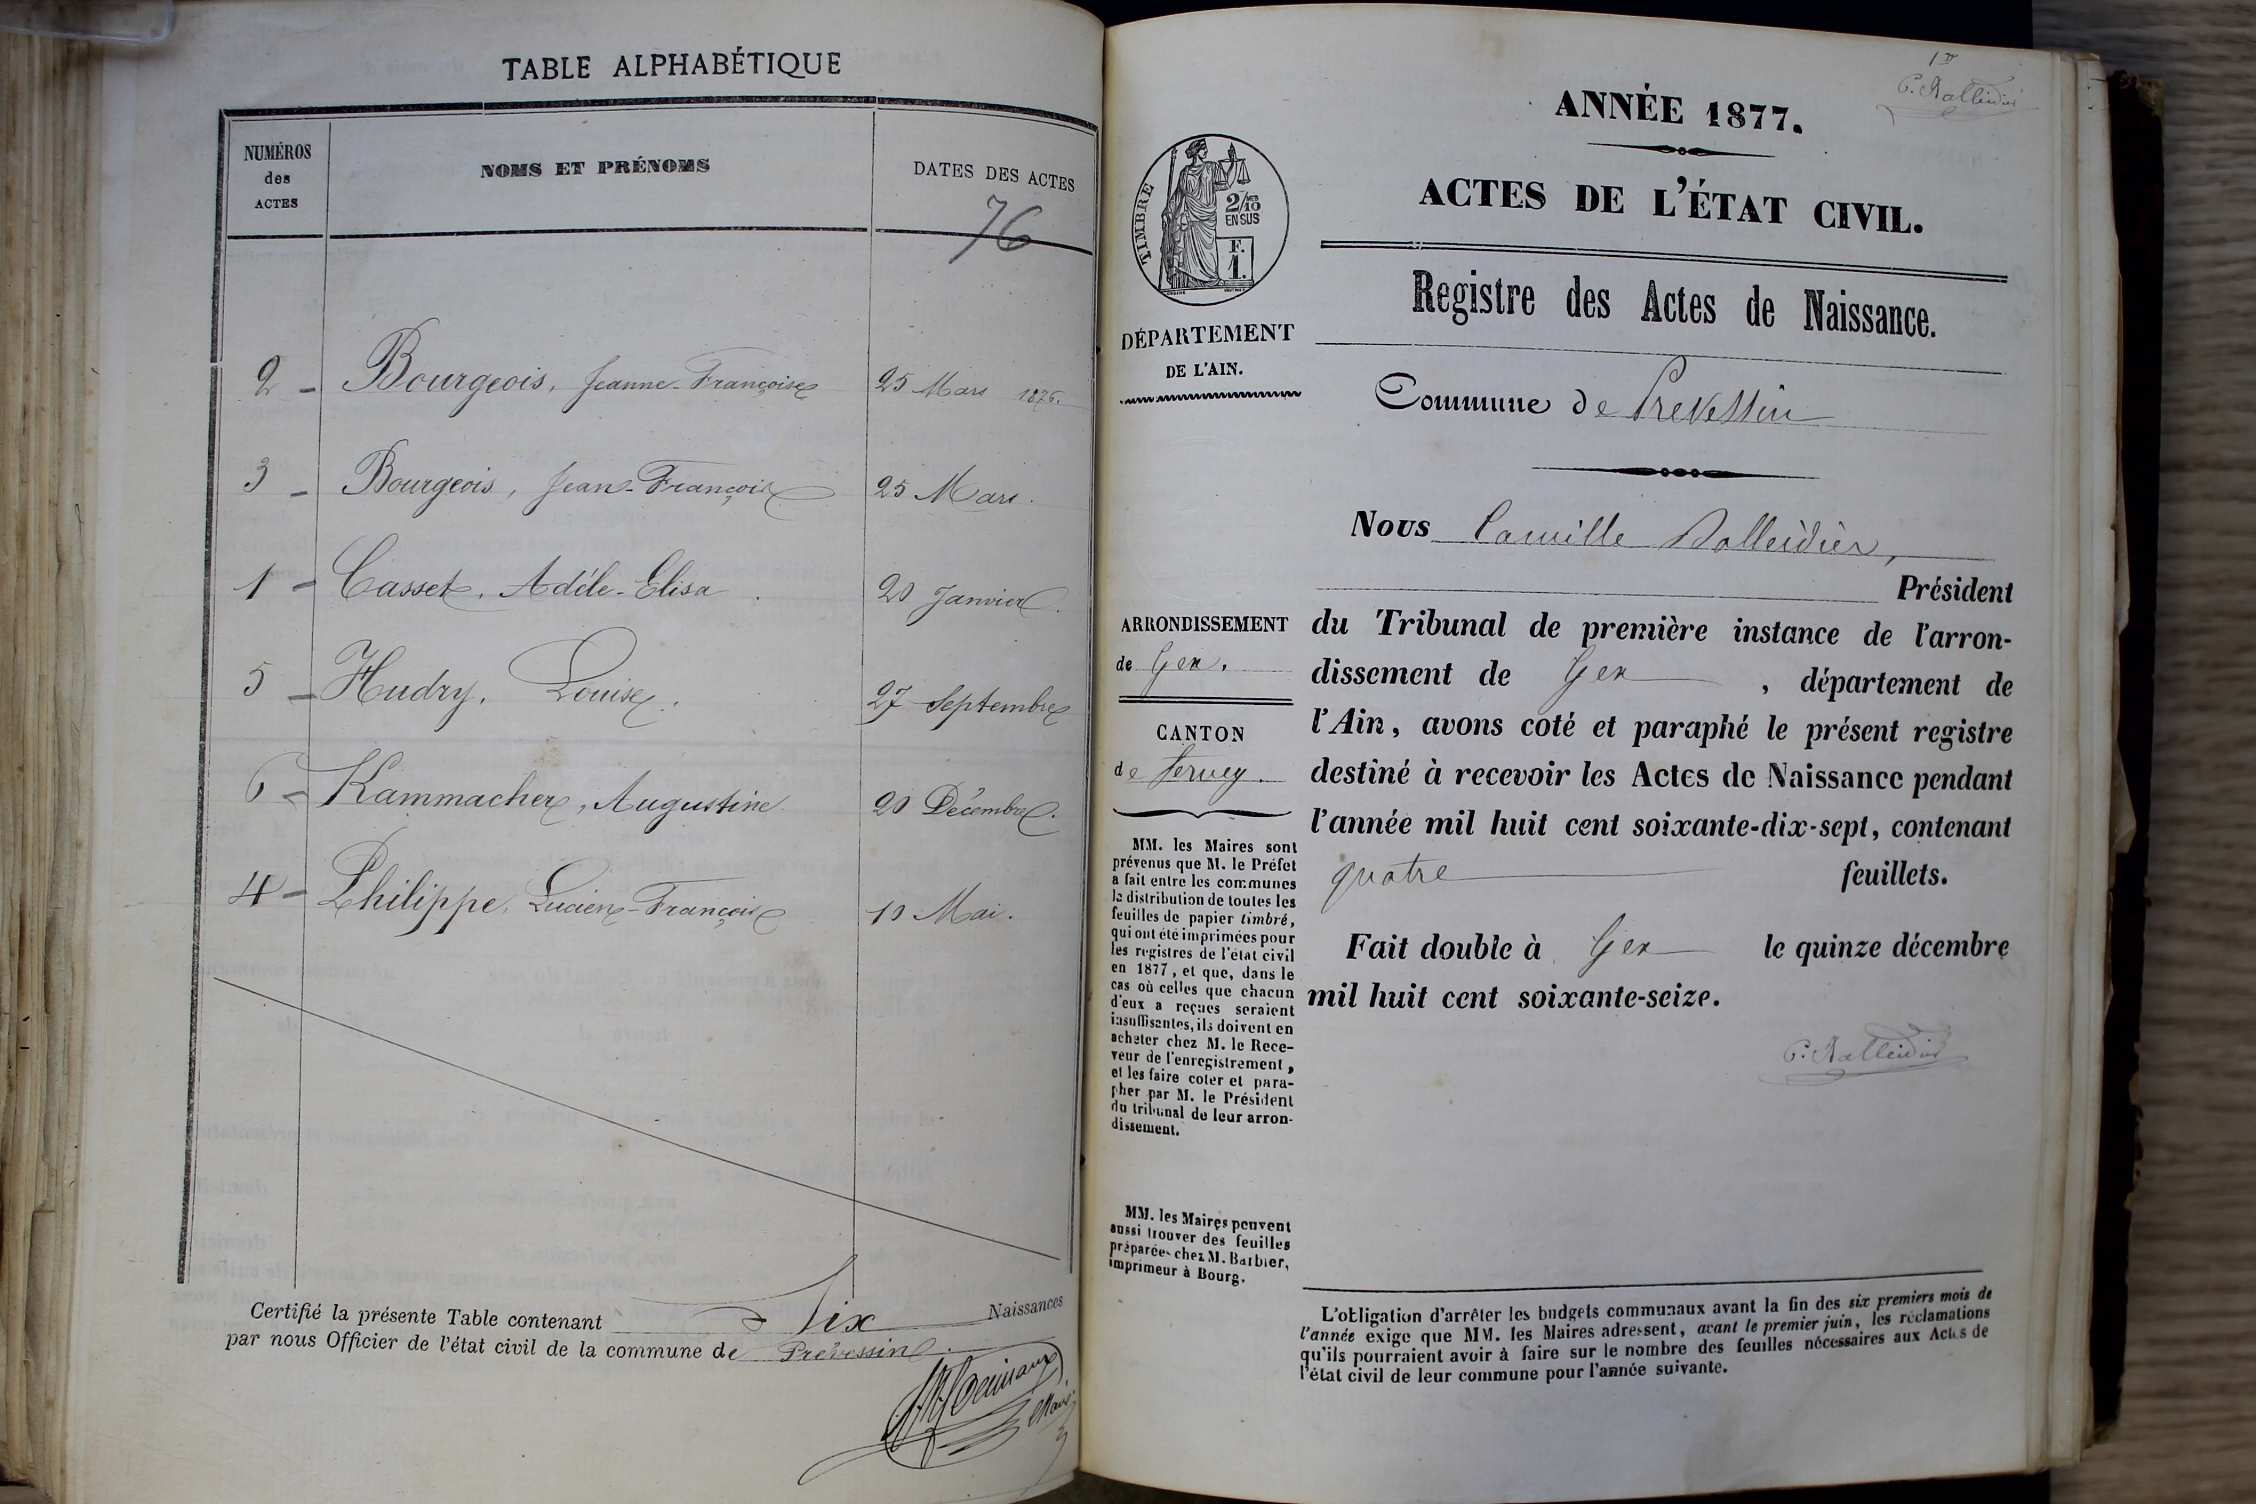 TABLE ALPHABÉTIQUE
NUMÉROS des ACTES
NOMS ET PRÉNOMS
DATES DES ACTES
76
2 - Bourgeois, Jeanne-Françoise 25 Mars 1876.
3 - Bourgeois, Jean-François 25 Mars.
1 - Casset, Adéle-Elisa. 20 Janvier.
5 - Hudry, Louise. 27 Septembre
6 - Kammacher, Augustine 20 Décembre.
4 - Philippe, Lucien-François 10 Mai.
Certifié la présente Table contenant Six Naissances
par nous Officier de l'état civil de la commune de Prévessin.
Maire
ANNÉE 1877.
ACTES DE L'ÉTAT CIVIL.
TIMBRE
2/10 EN SUS
F. 1.
Registre des Actes de Naissance.
DÉPARTEMENT
DE L'AIN.
Commune de Prevessin
Nous Camille
Président
ARRONDISSEMENT
de Gex.
CANTON
de Ferney.
du Tribunal de première instance de l'arron-
dissement de Gex, département de
l'Ain, avons coté et paraphé le présent registre
destiné à recevoir les Actes de Naissance pendant
l'année mil huit cent soixante-dix-sept, contenant
quatre feuillets.
Fait double à Gex le quinze décembre
mil huit cent soixante-seize.
MM. les Maires sont
prévenus que M. le Préfet
a fait entre les communes
la distribution de toutes les
feuilles de papier timbré,
qui ont été imprimées pour
les registres de l'état civil
en 1877, et que, dans le
cas où celles que chacun
d'eux a reçues seraient
insuffisantes, ils doivent en
acheter chez M. le Rece-
veur de l'enregistrement,
et les faire coter et para-
pher par M. le Président
du tribunal de leur arron-
dissement.
MM. les Maires peuvent
aussi trouver des feuilles
préparées chez M. Barbier,
imprimeur à Bourg.
L'obligation d'arrêter les budgets communaux avant la fin des six premiers mois de
l'année exige que MM. les Maires adressent, avant le premier juin, les réclamations
qu'ils pourraient avoir à faire sur le nombre des feuilles nécessaires aux Actes de
l'état civil de leur commune pour l'année suivante.